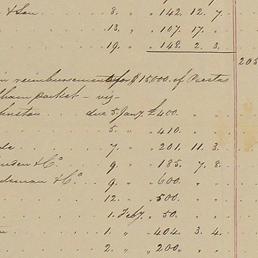 & Son 8. " 142. 12. 7.
13. " 107. 17. "
19. " 148. 2. 3.
205
in reimbursement for $15,000 of Pesetas
packet viz
due 5 Jany. £400. "
5. " 410. "
7. " 201. 11. 3.
& Co. 9. " 185. 7. 8.
& Co. 9. " 600. "
12. " 500. "
1. Feby. " 50. "
1. " 404. 3. 4.
2. " 200. "